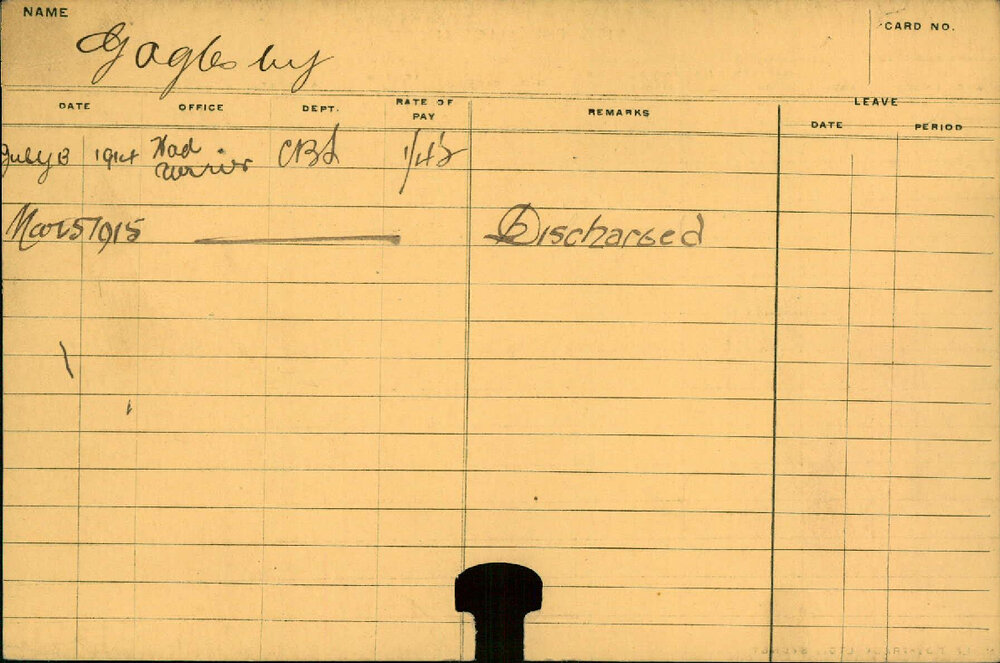 NAME
Goglesby
CARD NO.
DATE OFFICE DEPT. RATE OF PAY REMARKS LEAVE
DATE PERIOD
July 13 1914 CBL
Mar 5 1915 Discharged